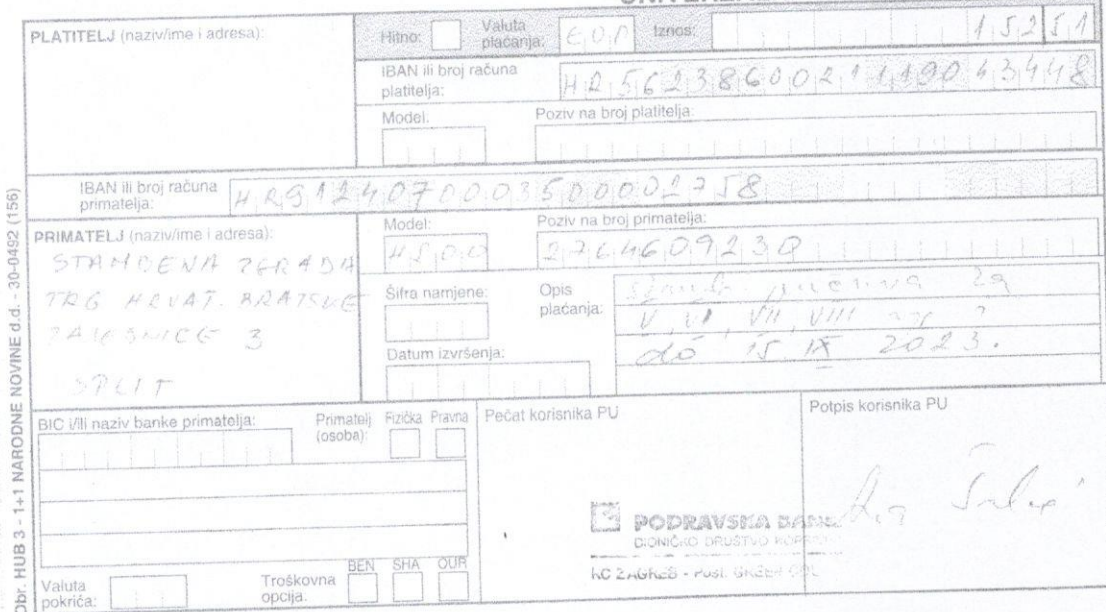 PLATITELJ (naziv/ime i adresa):
Hitno:
Valuta plaćanja: EUR
Iznos: 152 51
IBAN ili broj računa platitelja: HR5623860021119043448
Model:
Poziv na broj platitelja:
IBAN ili broj računa primatelja: HR9124070003500002758
PRIMATELJ (naziv/ime i adresa):
STAMBENA ZGRADA
TRG HRVAT. BRATSKE
ZAJEDNICE 3
SPLIT
Model: HR00
Poziv na broj primatelja: 2764609230
Šifra namjene:
Opis plaćanja: za
V, VI, VII, VIII
do 15. IX 2023.
Datum izvršenja:
BIC i/ili naziv banke primatelja:
Primatelj (osoba):
Fizička Pravna
Pečat korisnika PU
Potpis korisnika PU
PODRAVSKA BANKA
DIONIČKO DRUŠTVO
RC ZAGREB - Posl.
Valuta pokrića:
Troškovna opcija:
BEN SHA OUR
Obr. HUB 3 - 1+1 NARODNE NOVINE d.d. - 30-0492 (156)